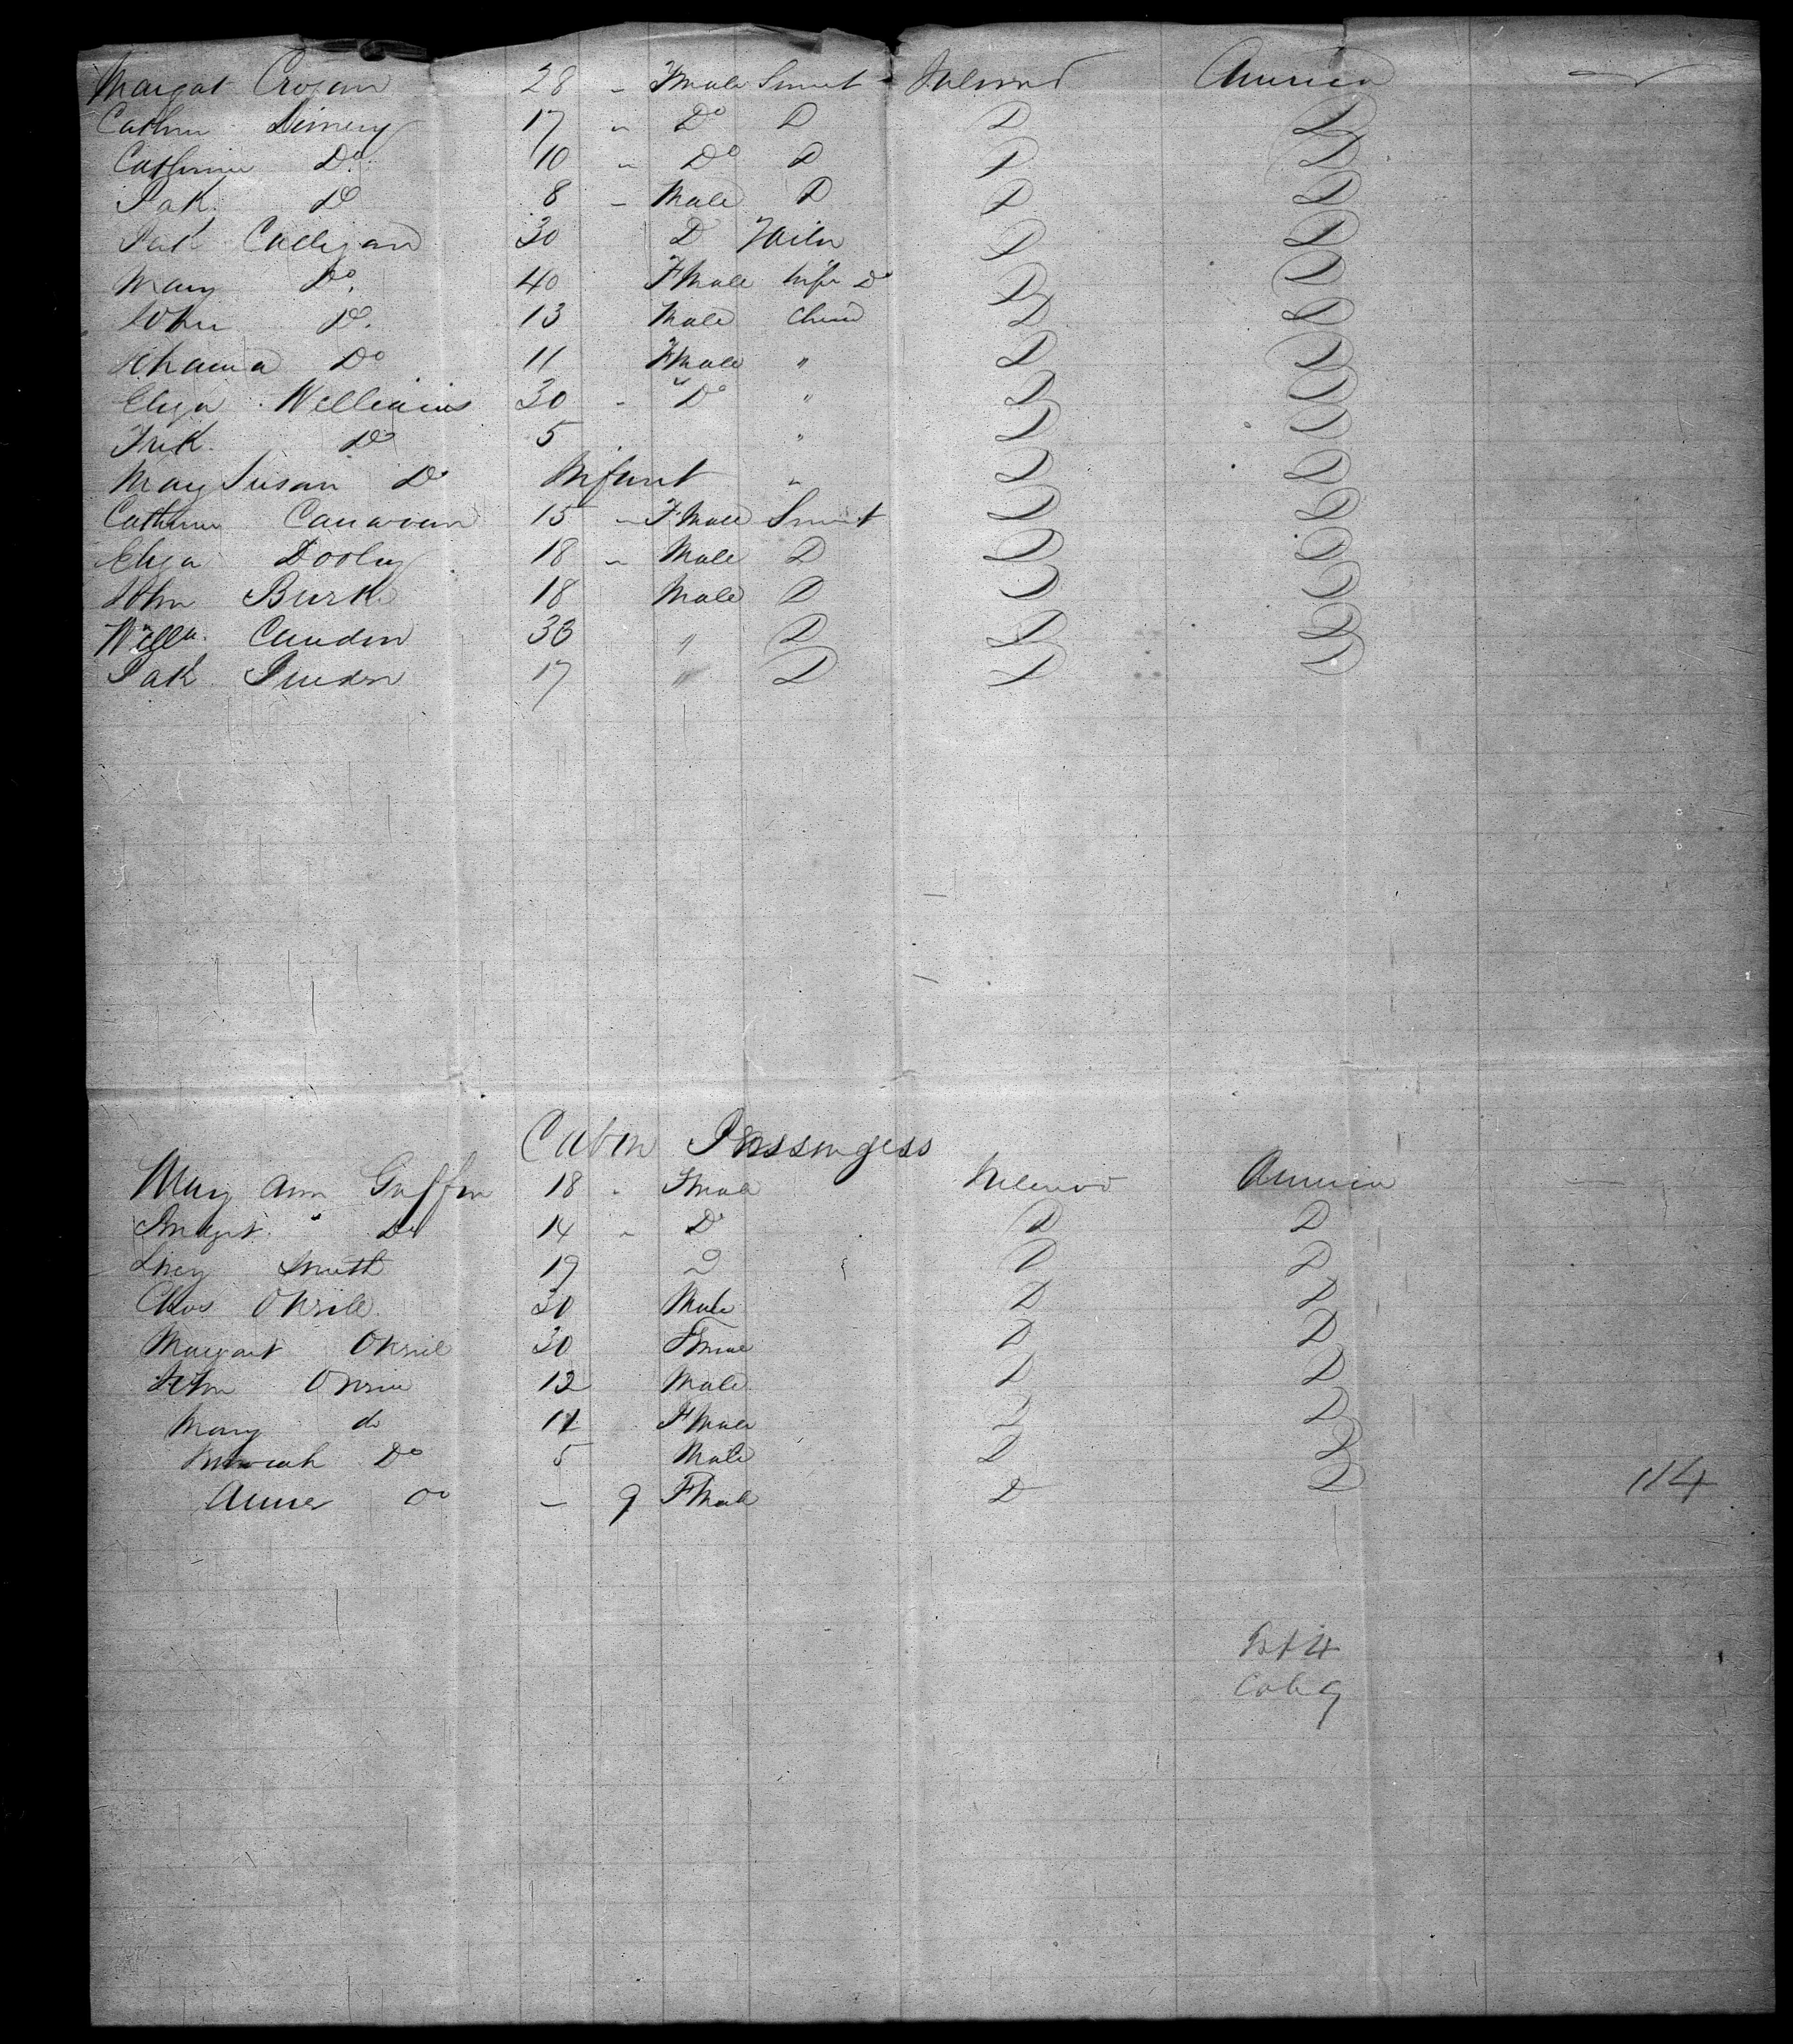 Margat Crogan 28 " Fmale Srvnt Ireland America
Cathrn Dimery 17 " Do D D D
Cathrine Do 10 " Do D D D
Pak Do 8 " Male D D D
Pak Culligan 30 D D D
Mary Do. 40 Fmale Wife Do D D
John Do. 13 Male Chied D D
Do 11 Fmale " D D
Eliza Williams 30 " Do " D D
Do 5 " D D
Mary Susan Do Infant " D D
Catherine Canavan 15 " Fmale Srvnt D D
Eliza Dooley 18 " Male D D D
John Burk 18 Male D D D
Willm. 33 " D D D
Pak 17 " D D D
Cabin Passengess
Mary Ann Gaffin 18 " Fmale Ireland America
Do 14 " Do D D
Lucy Smith 19 D D D
Chos ONeile 30 Male D D
Margaret ONeile 30 Fmale D D
John ONeile 12 Male D D
Mary do 11 Fmale D D
Do 5 Male D D
Anne Do — 9 Fmale D D 114
Cab 9